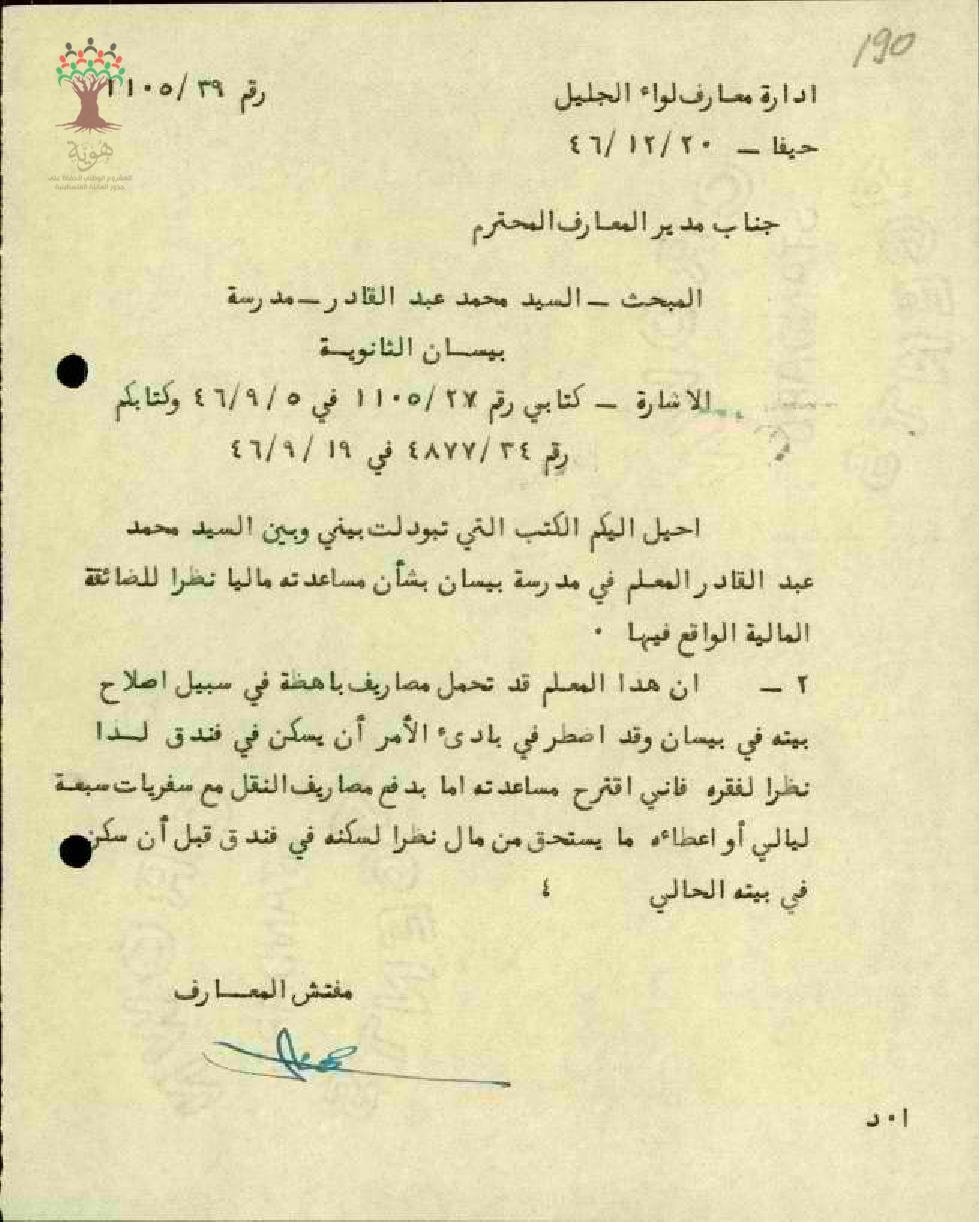 190
ادارة معارف لواء الجليل
رقم ٣٩/ ١١٠٥
حيفا – ٤٦/١٢/٢٠
هوية
المشروع الوطني للحفاظ على
جذور العائلة الفلسطينية
جناب مدير المعارف المحترم
المبحث – السيد محمد عبد القادر – مدرسة
بيسان الثانوية
الاشارة – كتابي رقم ٢٧/ ١١٠٥ في ٤٦/٩/٥ وكتابكم
رقم ٣٤/ ٤٨٧٧ في ١٩ /٤٦/٩
احيل اليكم الكتب التي تبودلت بيني وبين السيد محمد
عبد القادر المعلم في مدرسة بيسان بشأن مساعدته ماليا نظرا للضائقة
المالية الواقع فيها ٠
٢ – ان هدا المعلم قد تحمل مصاريف باهظة في سبيل اصلاح
بيته في بيسان وقد اصطر في بادىء الأمر أن يسكن في فندق لـدا
نظرا لفقره فاني اقترح مساعدته اما بدفع مصاريف النقل مع سفريات سبعة
ليالي أو اعطاءه ما يستحق من مال نظرا لسكنه في فندق قبل أن سكن
في بيته الحالي ٤
مفتش المعـارف
ا ٠ د